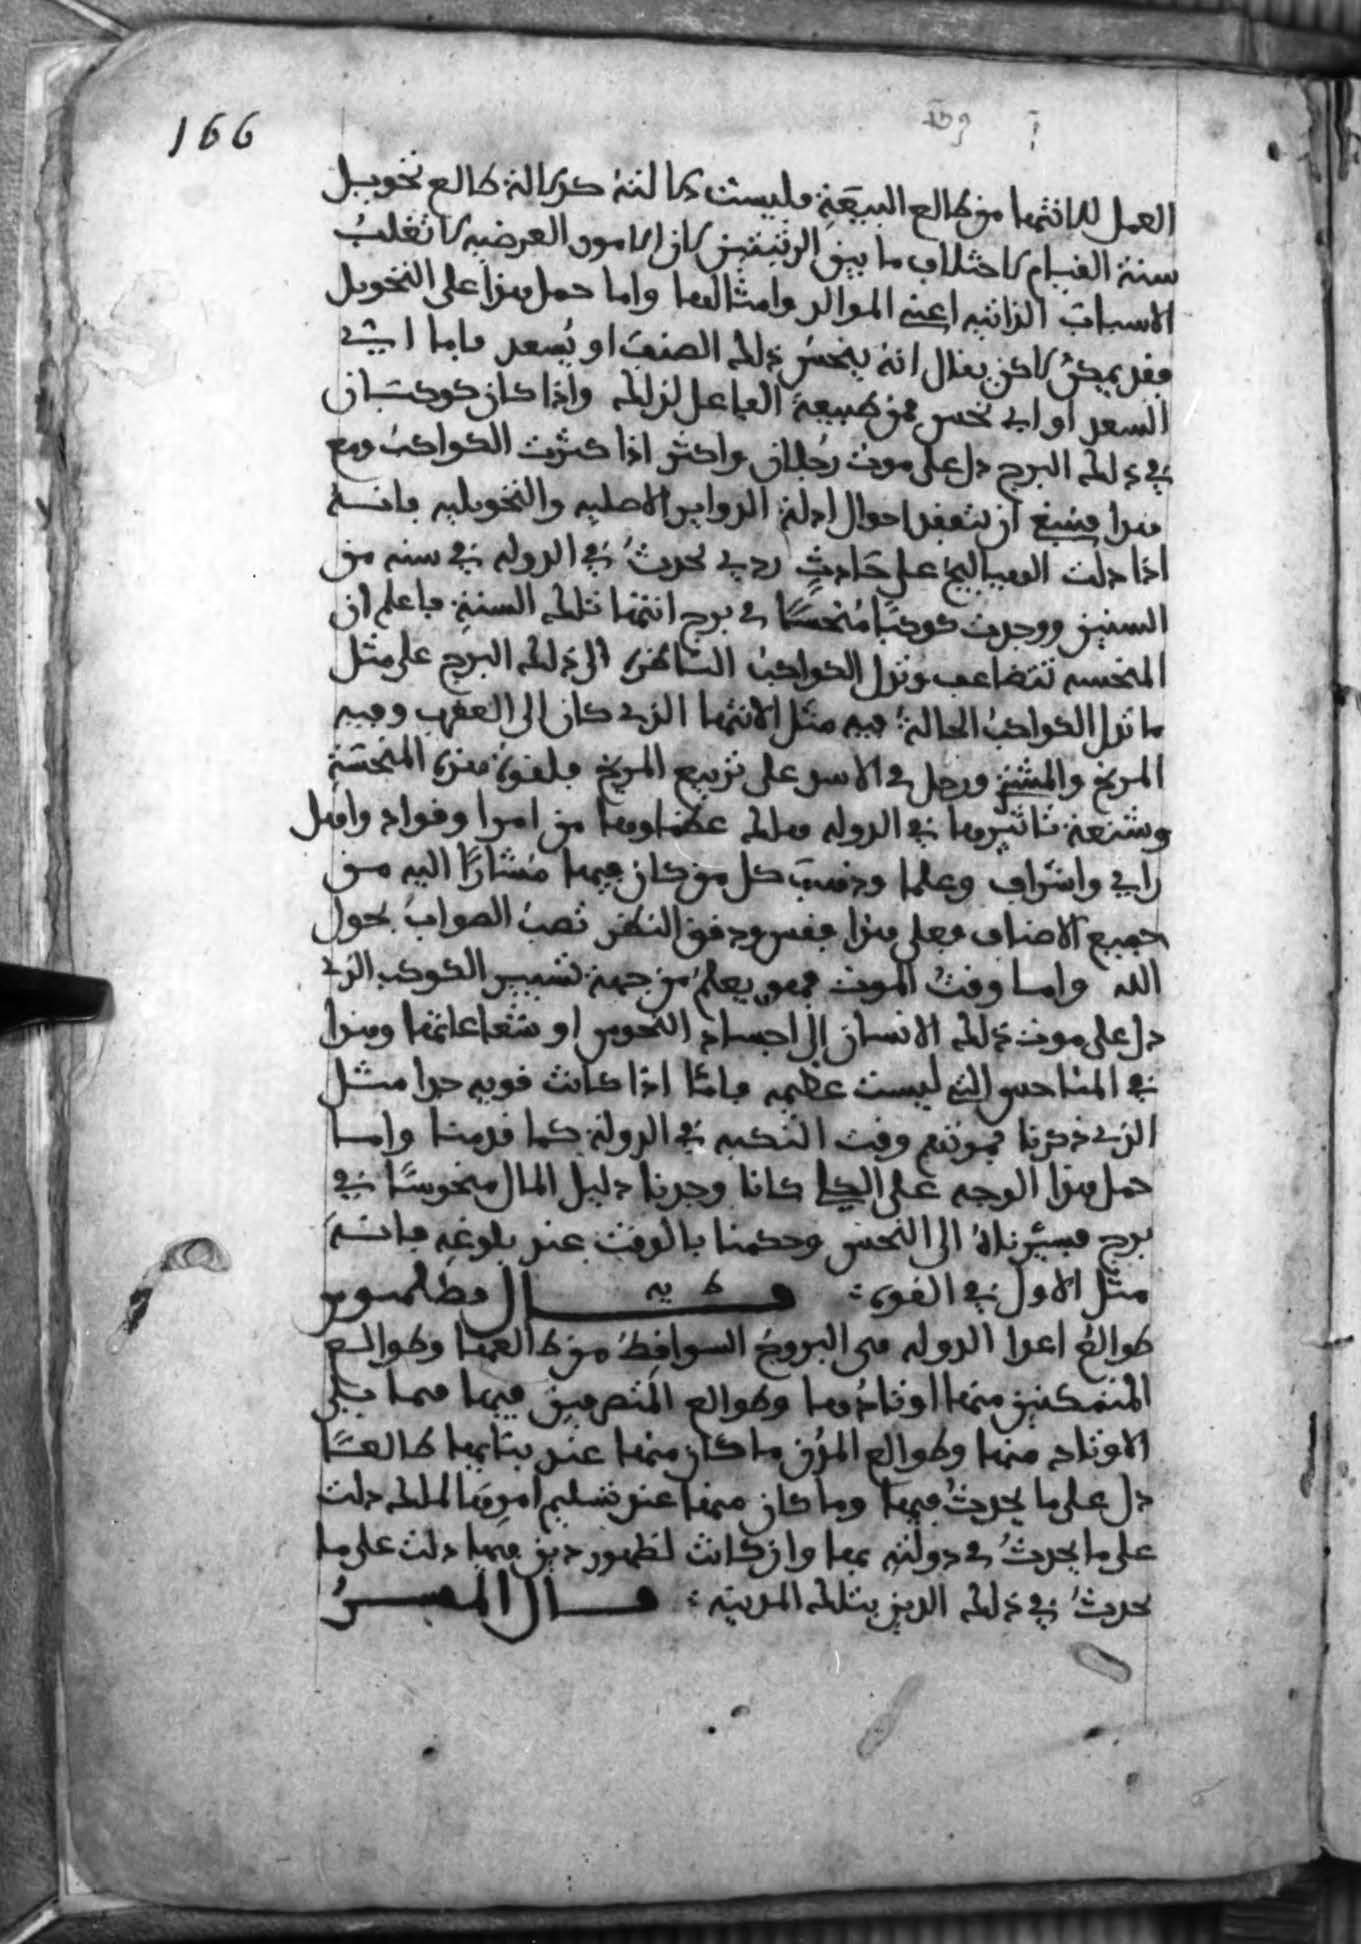 166
العمل للانتها من طالع البيعة فليست دلالته كدلالة طالع تحويل
سنة القيام لاختلاف ما بين الرتبتين لان الامور العرضيه لا تغلب
الاسباب الذاتيه اعني المواليد وامثالها واما حمل هذا على التحويل
فقد يمكن لاكن يقال انه ينحس ذلك الصنف او يُسعد فاما اي شي
السعد او اي نحس فمن طبيعة الفاعل لذلك واذا كان كوكبان
في ذلك البرج دل على موت رجلان واكثر اذا كثرت الكواكب ومع
هذا فينبغي ان يتفقد احوال ادلة الدواير الاصليه والتحويليه فانه
اذا دلت الهياليج على حادث ردي يحدث في الدوله في سنه من
السنين ووجدت كوكبا مُنحسًا في برج انتها تلك السنة فاعلم ان
المنحسه تتضاعف وتدل الكواكب الناظره الى ذلك البرج على مثل
ما تدل الكواكب الحالة فيه مثل الانتها الذي كان الى العقرب وفيه
المريخ والمشتري وزحل في الاسد على تربيع المريخ فلقوة هذه المنحسة
وشنعة تاثيرها في الدوله هلك عظماوها من امرا وقواد واهل
راي واشراف وعلما وذهب كل من كان فيها مُشارًا اليه من
جميع الاصناف فعلى هذا فقس ودقق النظر تصب الصواب بحول
الله واما وقت الموت فهو يعلم من جهة تسيير الكوكب الذي
دل على موت ذلك الانسان إلى اجساد النحوس او شعاعاتها وهذا
في المناحس التي ليست عظيمه فامّا اذا كانت قويه جدا مثل
الذي ذكرنا فهو تتبع وقت النكبه في الدولة كما قدمنا واما
حمل هذا الوجه على الكل كانا وجدنا دليل المال منحوسًا في
برج فسيّرناهُ الى النحس وحكمنا بالوقت عند بلوغه فانه
مثل الاول في القوة قال بطلميوس
طوالع اعدا الدوله هي البروج السواقط من طالعها وطوالع
المتمكنين منها اوتادها وطوالع المتصرفين فيها فيما يلي
الاوتاد منها وطوالع المدن ما كان منها عند بنايها طالعًا
دل على ما يحدث فيها وما كان منها عند تسليم امرها لملك دلت
على ما يحدث في دولته بها وان كانت لظهور دين فيها دلت على ما
يحدث في ذلك الدين بتلك المدينه قال المفسر